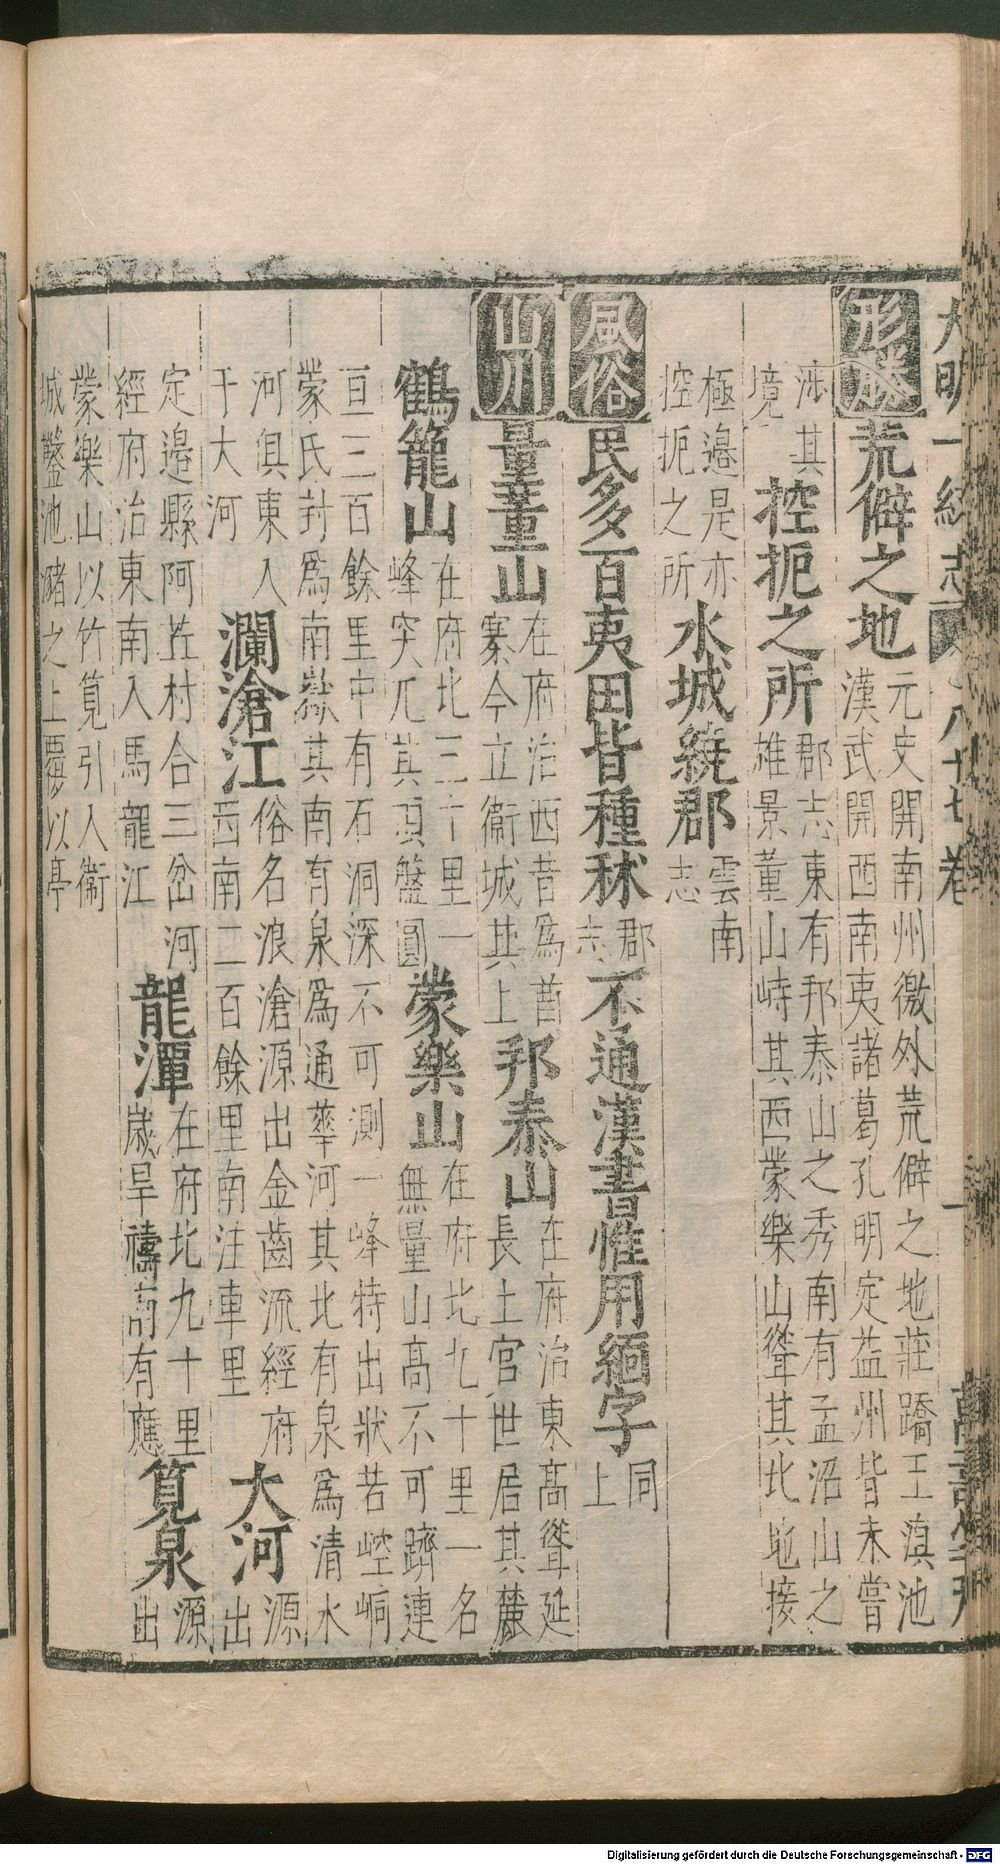 大明一統志 八十七卷 一
形勝荒僻之地元史開南州徼外荒僻之地莊蹻王滇池
漢武開西南夷諸葛孔明定益州皆未嘗
涉其境控扼之所郡志東有邦泰山之秀南有孟沼山之
雄景董山峙其西蒙樂山聳其北地接
極邉是亦控扼之所水城繞郡雲南志
風俗民多百夷田皆種秫郡志不通漢書惟用緬字同上
山川量董山在府治西昔為昔
寨今立衞城其上邦泰山在府治東高聳延
長土官世居其麓
鶴籠山在府北三十里一
峰突兀其頂盤圓蒙樂山在府北九十里一名
無量山高不可躋連
亘三百餘里中有石洞深不可測一峰特出狀若崆峒
蒙氏封為南嶽其南有泉為通華河其北有泉為清水
河俱東入于大河瀾滄江俗名浪滄源出金齒流經府
西南二百餘里南注車里大河源出
定邉縣阿苴村合三岔河
經府治東南入馬龍江龍潭在府北九十里
歲旱禱有應筧泉源出
蒙樂山以竹筧引入衞
城鑿池瀦之上覆以亭
Digitalisierung gefördert durch die Deutsche Forschungsgemeinschaft - DFG